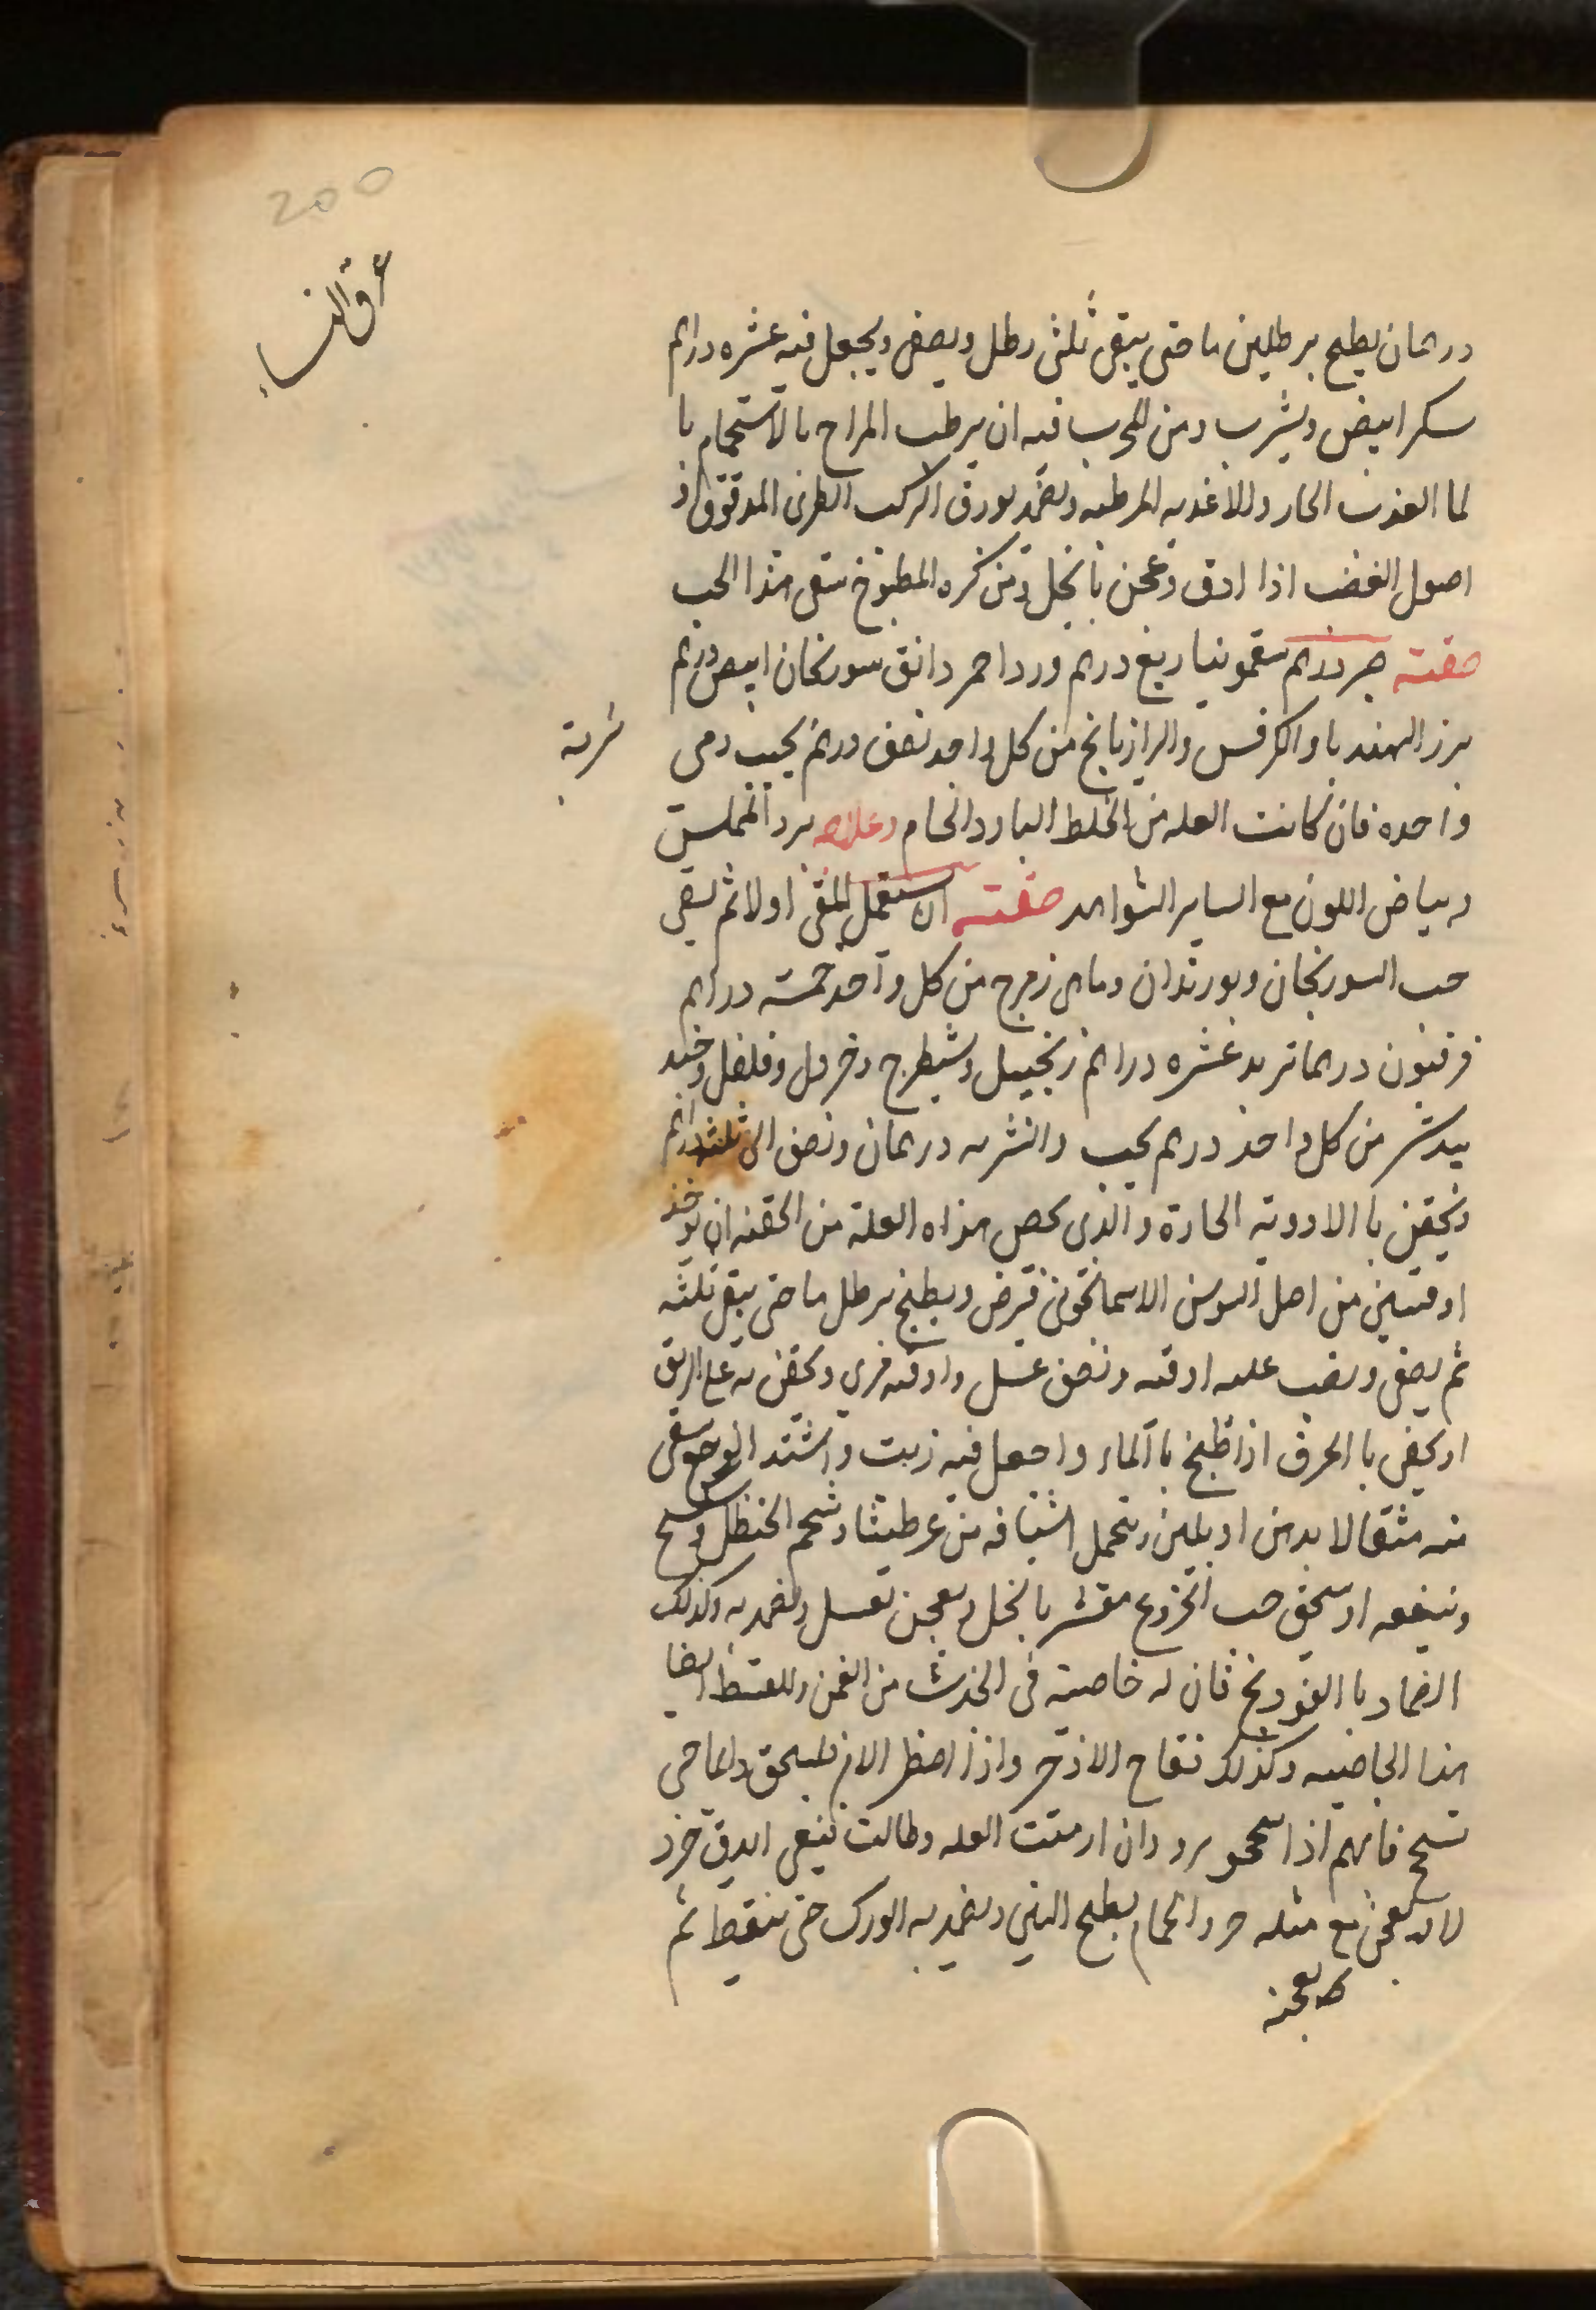 200
عرق النساء
درهمان يطبخ برطلين ما حتى يبقى ثلثى رطل ويصفى ويجعل فيه عشره دراهم
سكر ابيض ويشرب ومن المجرب فيه ان يرطب المزاج بالاستحمام با
لما العذب الحار والاغذيه المرطبه ويضمد بورق الطرى المدقوق او
اصول القصب اذا ادق وعجن بالخل ومن كره المطبوخ سقى هذا الحب
صفته صبر درهم سقمونيا ربع درهم ورد احمر دانق سورنجان ابيض درهم
بزر الهندبا والكرفس والرازيانج من كل واحد نصف درهم يحبب وهى
شربة
واحده فان كانت العله من الخلط البارد الخام وعلامه برد الملمس
وبياض اللون مع الساير الشواهد صفته ان يستعمل القى اولا ثم يسقى
حب السورنجان وبوزيدان وماهى زهرج من كل واحد خمسة دراهم
فرفيون درهما تربد عشره دراهم زنجبيل وشيطرج وخردل وفلفل وجند
بيدستر من كل واحد درهم يحبب والشربه درهمان ونصف الى ثلثة دراهم
ويحقن با الادوية الحارة والذى يخص هذاه العلة من الحقنه ان يوخذ
اوقيتين من اصل السوسن الاسمانجونى فيرض ويطبخ برطل ما حتى يبقى ثلثه
ثم يصفى ويصب عليه اوقيه ونصف عسل واوقيه مرى ويحقن به على الريق
او يحقن با الحرف اذا طبخ با الماء واجعل فيه زيت واشتد الوجع وسقى
منه مثقالا بدهن او بلبن ويتحمل اشيافه من عرطنيثا وشحم الحنظل
وينفعه ان يسحق حب الخروع مقشر بالخل ويعجن بعسل ويضمد به وكذلك
الضماد با الفودنج فان له خاصية فى الجذب من العمق وللقسط ايضا
هذا الخاصيه وكذلك نقاح الاذخر واذا اضطر الامر فليسحق دايما حتى
تسحج فانهم اذا سحجو بروو وان ازمنت العله وطالت ينبغى ان يدق خرد
لا ويعجن مع مثله خرو الحمام بطبخ التين ويضمد به الورك حتى ينقيط ثم
يعجنه